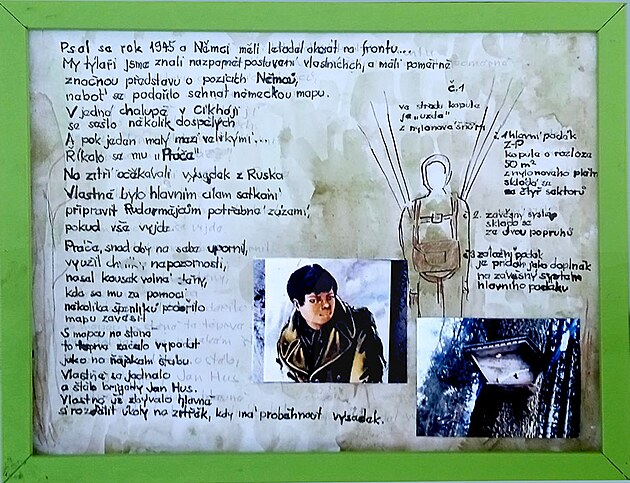 Psal se rok 1945 a Němci měli letadel akorát na frontu...
My týlaři jsme znali nazpaměť poslouvání vlastních, a měli poměrně
značnou představu o pozicích Němců,
neboť se podařilo sehnat německou mapu.
V jedné chalupě v Cikháji
se sešlo několik dospělých
A pak jeden malý mezi velikými...
Říkalo se mu "Práča"
Na zítří očekávali výsadek z Ruska
Vlastně bylo hlavním cílem setkání
připravit Rudoarmějcům potřebné zázemí,
pokud vše vyjde
Práča, snad aby na sebe upornil,
využil chvilky nepozornosti,
našel kousek volné stěny,
kde se mu za pomoci
několika špendlíků podařilo
mapu zavěsit.
S mapou na stěně
to teprve začalo vypadat
jako na nějakém štábu.
Vlastně se jednalo
o štáb brigády Jan Hus.
Vlastně už zbývalo hlavně
si rozdělit úkoly na zítřek, kdy má proběhnout výsadek.
č.1
ve středu kopule
je "uzda"
z nylonové šňůry
č. 1 hlavní padák
Z-P
kopule o rozloze
50 m²
z nylonového plátna
skládá se
ze čtyř sektorů
č. 2. závěsný systém
skládá se
ze dvou popruhů
č. 3 záložní padák
je přidán jako doplněk
na závěsný systém
hlavního padáku